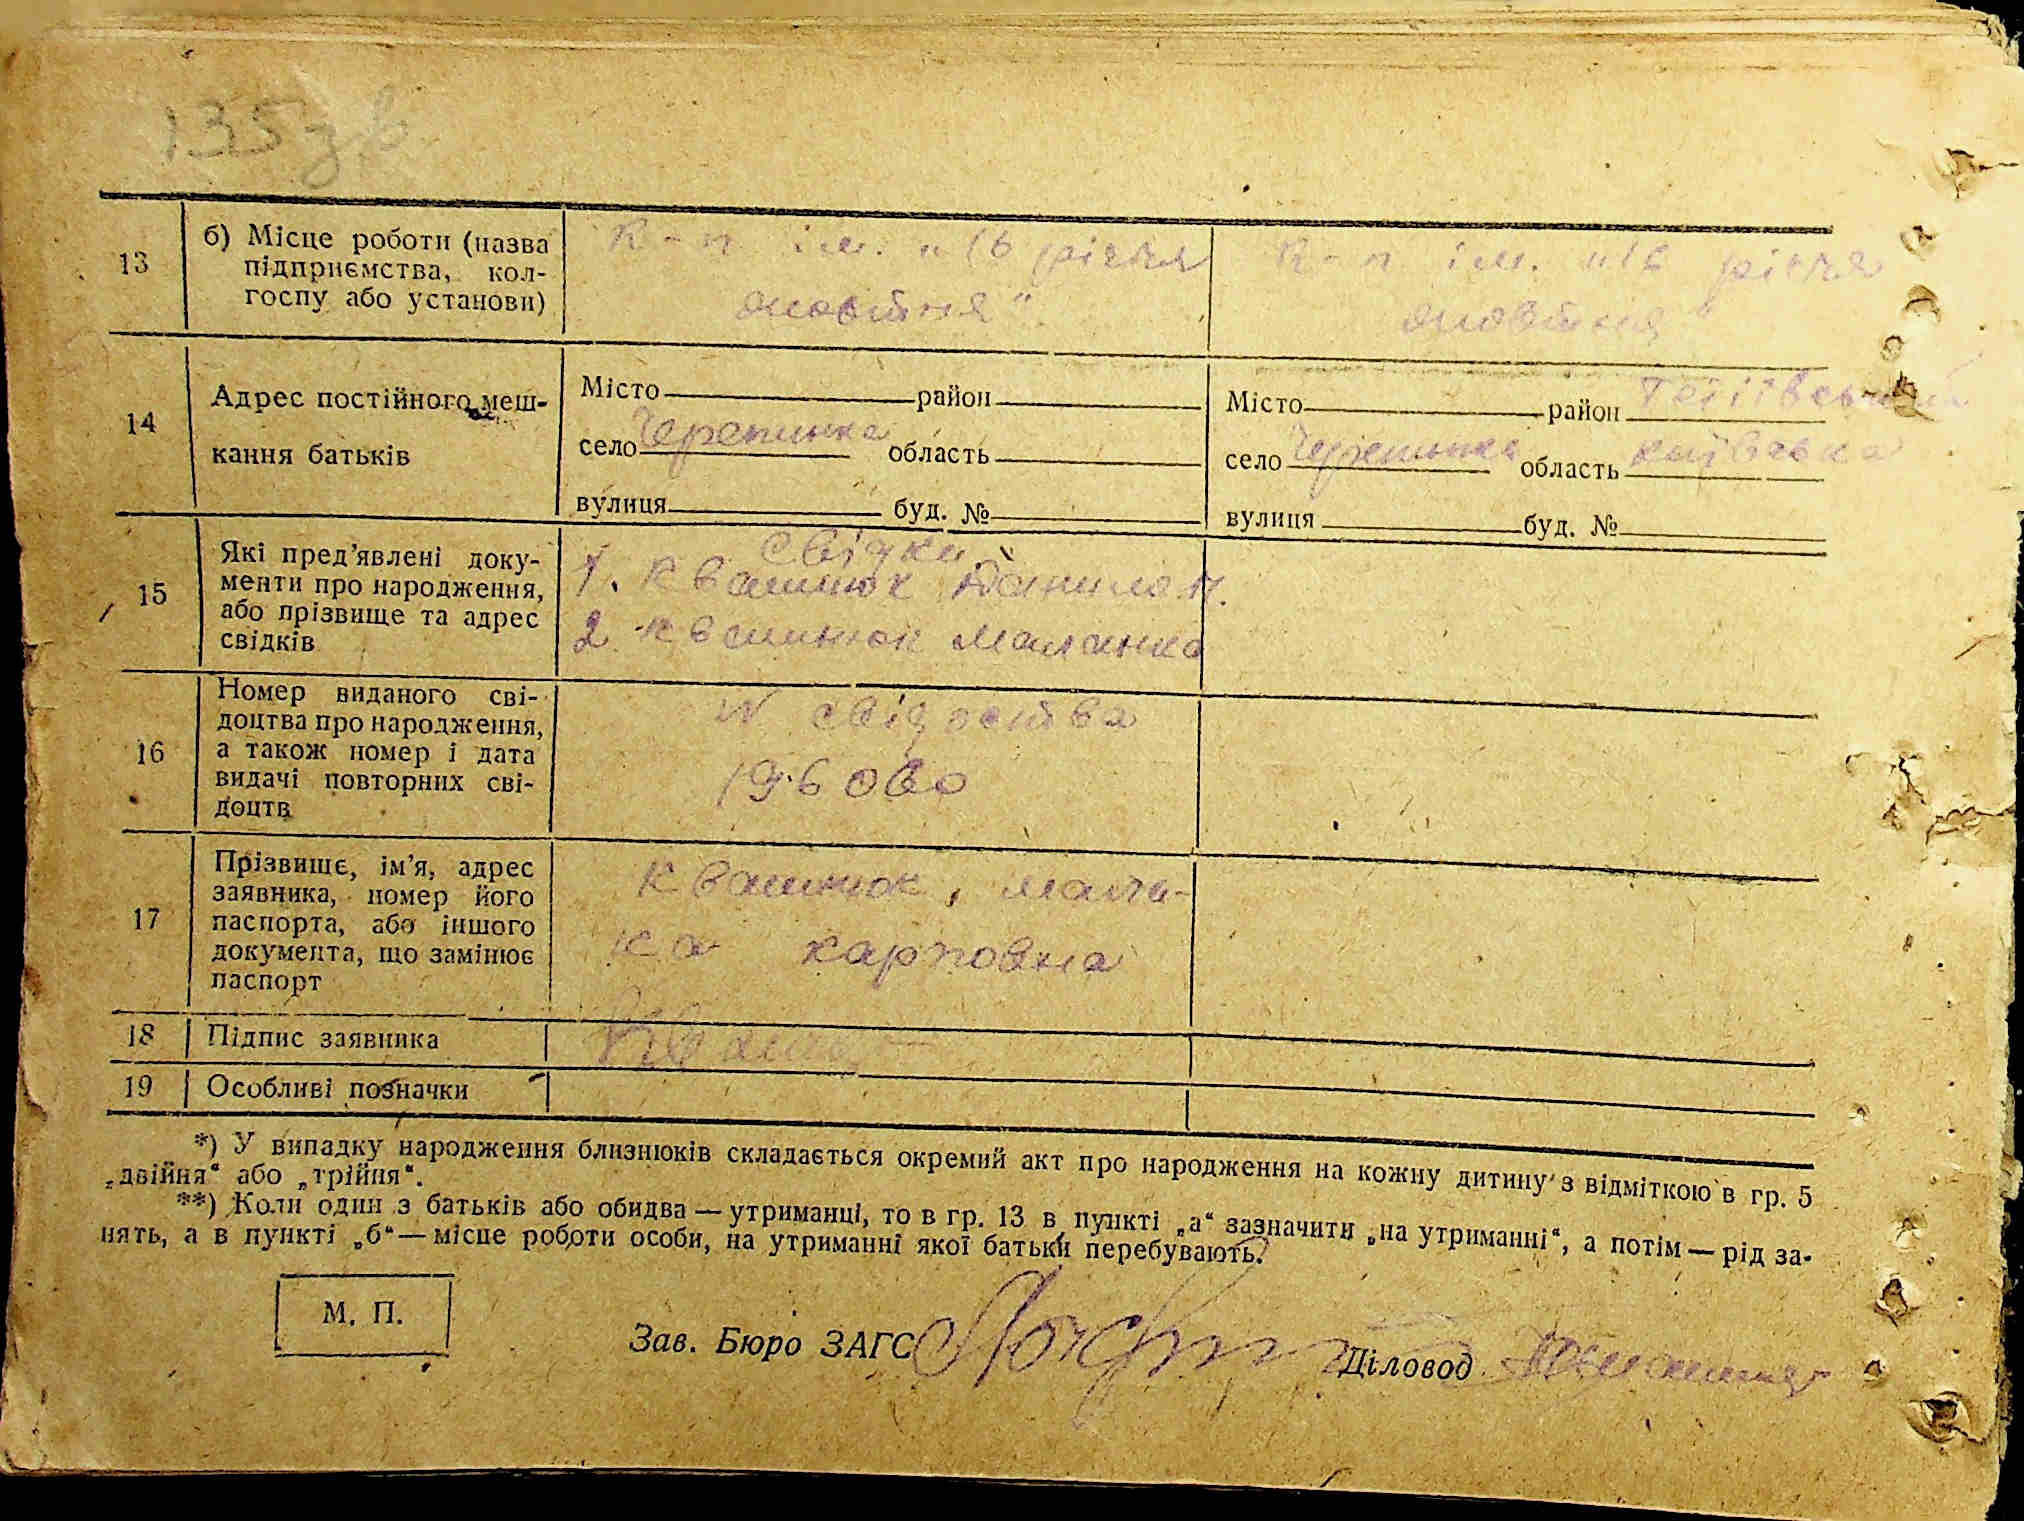 135 зв
13
б) Місце роботи (назва
підприємства, кол-
госпу або установи)
К-п ім. „16 річчя
жовтня"
К-п ім. „16 річчя
жовтня"
14
Адрес постійного меш-
кання батьків
Місто район
село Черепинка область
вулиця буд. №
Місто район Тетіївський
село Черепинка область київська
вулиця буд. №
15
Які пред’явлені доку-
менти про народження,
або прізвище та адрес
свідків
свідки
1. Квашнюк Данило М.
2 Квашнюк
16
Номер виданого сві-
доцтва про народження,
а також номер і дата
видачі повторних сві-
доцтв
N свідоства
17
Прізвище, ім’я, адрес
заявника, номер його
паспорта, або іншого
документа, що замінює
паспорт
Квашнюк,
карповна
18
Підпис заявника
19
Особливі позначки
*) У випадку народження близнюків складається окремий акт про народження на кожну дитину з відміткою в гр. 5
„двійня“ або „трійня“.
**) Коли один з батьків або обидва — утриманці, то в гр. 13 в пункті „а“ зазначити „на утриманні“, а потім — рід за-
нять, а в пункті „б“ — місце роботи особи, на утриманні якої батьки перебувають.
М. П.
Зав. Бюро ЗАГС
Діловод